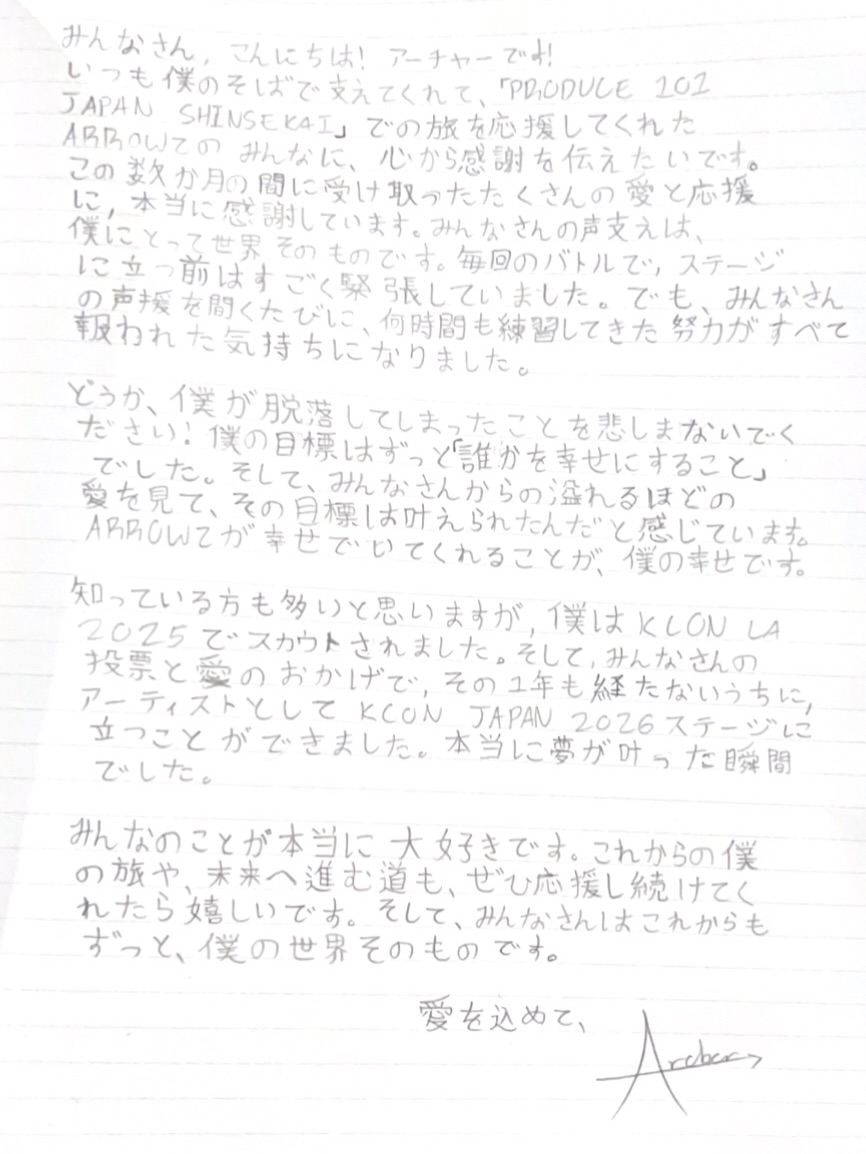 みんなさん, こんにちは! アーチャーです!
いつも僕のそばで支えてくれて、「PRODUCE 101
JAPAN SHINSEKAI」での旅を応援してくれた
ARROWZの みんなに、心から感謝を伝えたいです。
この数か月の間に受け取ったたくさんの愛と応援
に, 本当に感謝しています。みんなさんの声支えは、
僕にとって世界そのものです。毎回のバトルで, ステージ
に立つ前はすごく緊張していました。でも、みんなさん
の声援を聞くたびに、何時間も練習してきた努力がすべて
報われた気持ちになりました。
どうか、僕が脱落してしまったことを悲しまないでく
ださい! 僕の目標はずっと「誰かを幸せにすること」
でした。そして、みんなさんからの溢れるほどの
愛を見て、その目標は叶えられたんだと感じています。
ARROWZが幸せでいてくれることが、僕の幸せです。
知っている方も多いと思いますが, 僕はKCON LA
2025でスカウトされました。そして, みんなさんの
投票と愛のおかげで, その1年も経たないうちに,
アーティストとしてKCON JAPAN 2026ステージに
立つことができました。本当に夢が叶った瞬間
でした。
みんなのことが本当に大好きです。これからの僕
の旅や、未来へ進む道も、ぜひ応援し続けてく
れたら嬉しいです。そして、みんなさんはこれからも
ずっと、僕の世界そのものです。
愛を込めて、
Archer